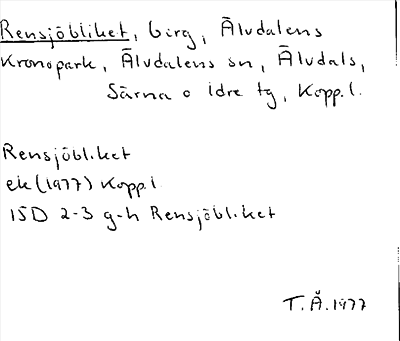 Rensjöbliket, berg, Älvdalens
Kronopark, Älvdalens sn, Älvdals,
Särna o Idre tg, Kopp. l.
Rensjöbliket
ek (1977) Kopp. l
15D 2-3 g-h Rensjöbliket
T. Å. 1977